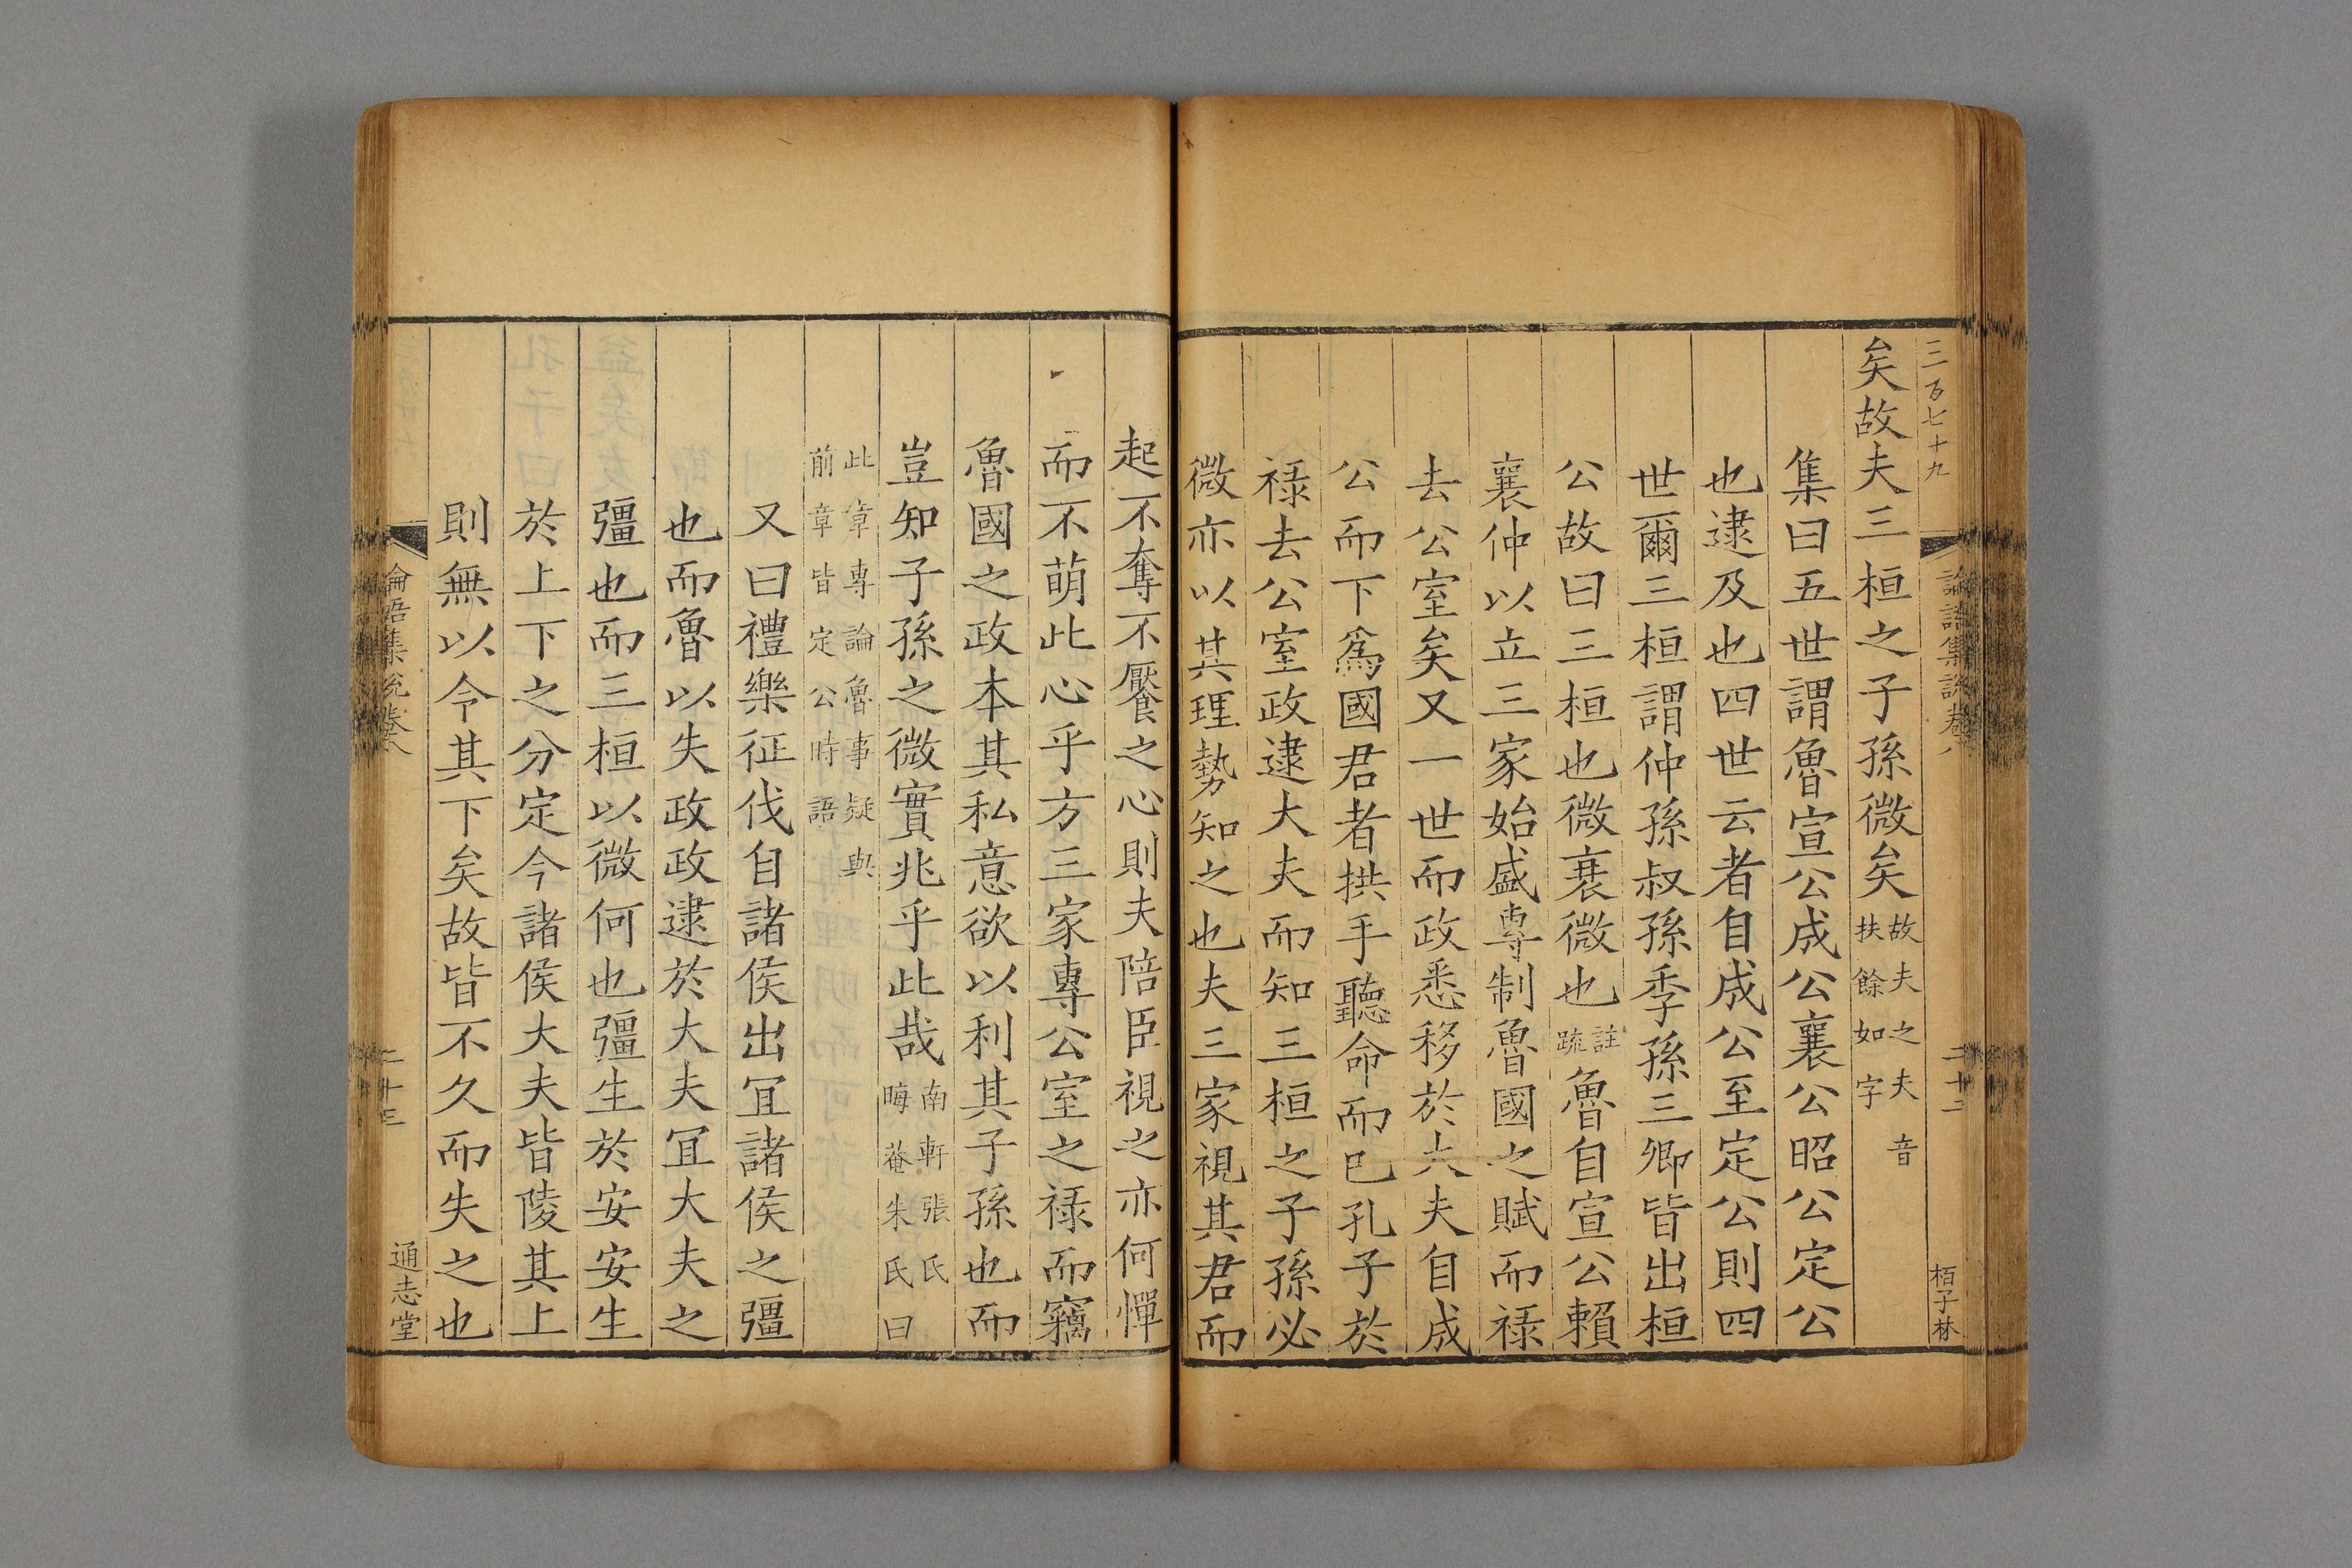 三百七十九
論語集說卷八
二十二
栢子林
矣故夫三桓之子孫微矣
故夫之夫音
扶餘如字
集曰五世謂魯宣公成公襄公昭公定公
也逮及也四世云者自成公至定公則四
世爾三桓謂仲孫叔孫季孫三卿皆出桓
公故曰三桓也微衰微也
註
疏
魯自宣公賴
襄仲以立三家始盛專制魯國之賦而禄
去公室矣又一世而政悉移於大夫自成
公而下爲國君者拱手聽命而巳孔子於
禄去公室政逮大夫而知三桓之子孫必
微亦以其理勢知之也夫三家視其君而
起不奪不饜之心則夫陪臣視之亦何憚
而不萌此心乎方三家專公室之禄而竊
魯國之政本其私意欲以利其子孫也而
豈知子孫之微實兆乎此哉
南軒張氏
晦菴朱氏曰
此章專論魯事疑與
前章皆定公時語
又曰禮樂征伐自諸侯出冝諸侯之彊
也而魯以失政政逮於大夫冝大夫之
彊也而三桓以微何也彊生於安安生
於上下之分定今諸侯大夫皆陵其上
則無以令其下矣故皆不久而失之也
論語集說卷八
二十三
通志堂